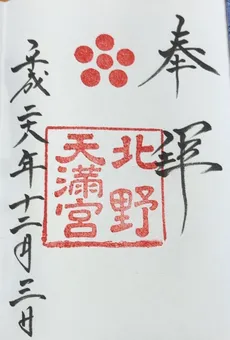 奉拝
北野
天満宮
平成二八年十二月三日